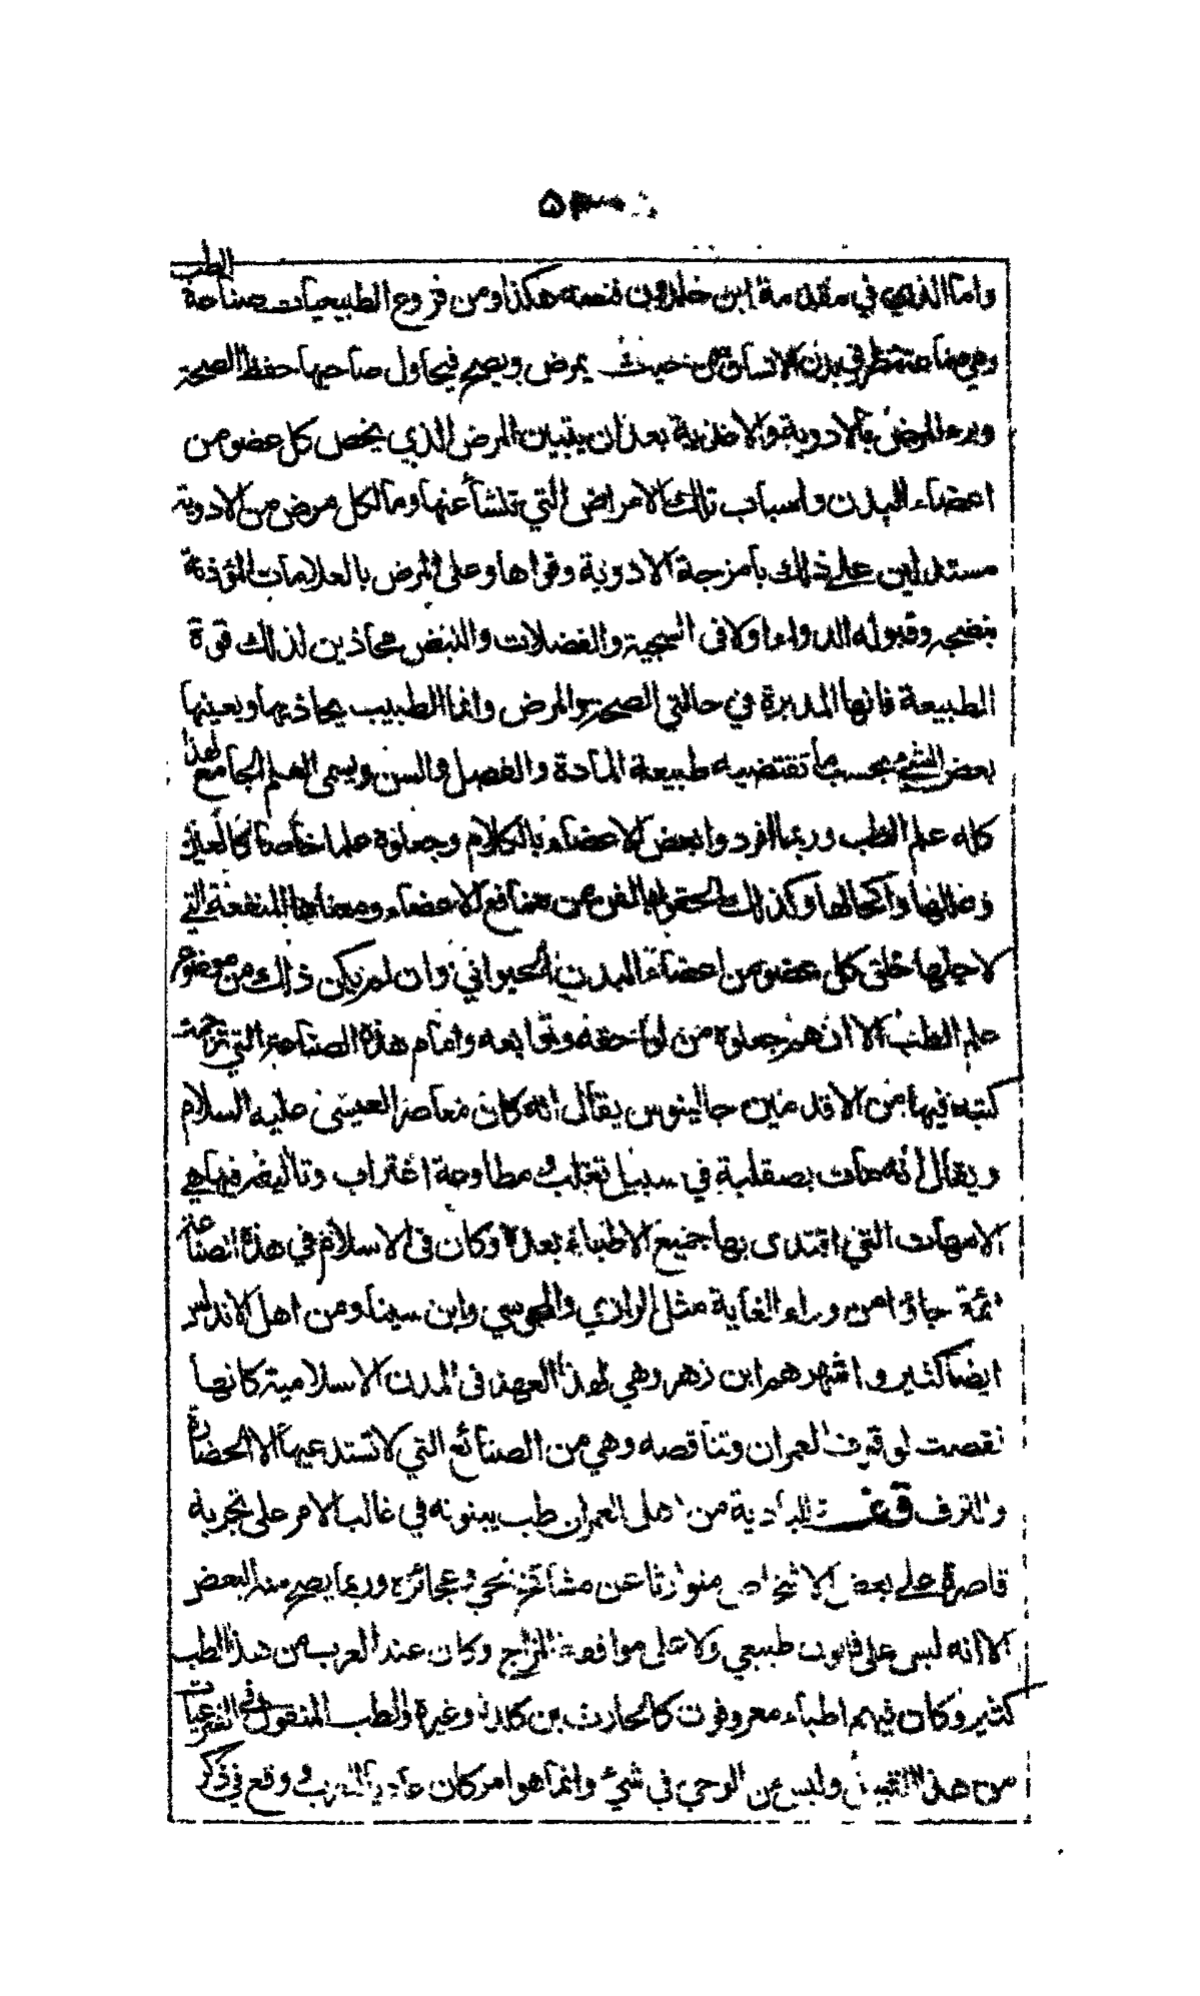 واما الذي في مقدمة ابن خلدون فنصه هكذا ومن فروع الطبيعيات صناعة الطب
وهي صناعة تنظر في بدن الانسان من حيث يمرض ويصح فيحاول صاحبها حفظ الصحة
وبرء المرض بالادوية والاغذية بعد ان يتبين المرض الذي يخص كل عضو من
اعضاء البدن واسباب تلك الامراض التي تنشأ عنها وما لكل مرض من الادوية
مستدلين على ذلك بامزجة الادوية وقواها وعلى المرض بالعلامات المؤذنة
بنضجه وقبوله الدواء اولا في السجية والفضلات والنبض محاذين لذلك قوة
الطبيعة فانها المدبرة في حالتي الصحة والمرض وانما الطبيب يحاذيها ويعينها
بعض الشيء بحسب ما تقتضيه طبيعة المادة والفصل والسن ويسمى العلم الجامع لهذا
كله علم الطب وربما افردوا بعض الاعضاء بالكلام وجعلوه علما خاصا كالعين
وعللها واكحالها وكذلك الحقوا بالفن من منافع الاعضاء ومعناها المنفعة التي
لاجلها خلق كل عضو من اعضاء البدن الحيواني وان لم يكن ذلك من موضوع
علم الطب الا انهم جعلوه من لواحقه وتوابعه وامام هذه الصناعة التي ترجمت
كتبه فيها من الاقدمين جالينوس يقال انه كان معاصر العيسى عليه السلام
ويقال انه مات بصقلية في سبيل تغلب ومطاوعة اغتراب وتآليفه فيها هي
الامهات التي اقتدى بها جميع الاطباء بعده وكان في الاسلام في هذه الصناعة
ئمة جاؤا من وراء الغاية مثل الرازي والمجوسي وابن سينا ومن اهل الاندلس
ايضا كثير واشهرهم ابن زهر وهي لهذا العهد في المدن الاسلامية كانها
نقصت لوقوف العمران وتناقصه وهي من الصنائع التي لا تستدعيها الا الحضارة
والترف قف للبادية من اهل العمران طب يبنونه في غالب الامر على تجربة
قاصرة على بعض الاشخاص متوارثا عن مشائخ الحي وعجائزه وربما يصح منه البعض
الا انه ليس على قانون طبيعي ولا على موافقة المزاج وكان عند العرب من هذا الطب
كثير وكان فيهم اطباء معروفون كالحارث بن كلدة وغيره والطب المنقول في الشرعيات
من هذا القبيل وليس من الوحي في شيء وانما هو امر كان عاديا للعرب ووقع في ذكر